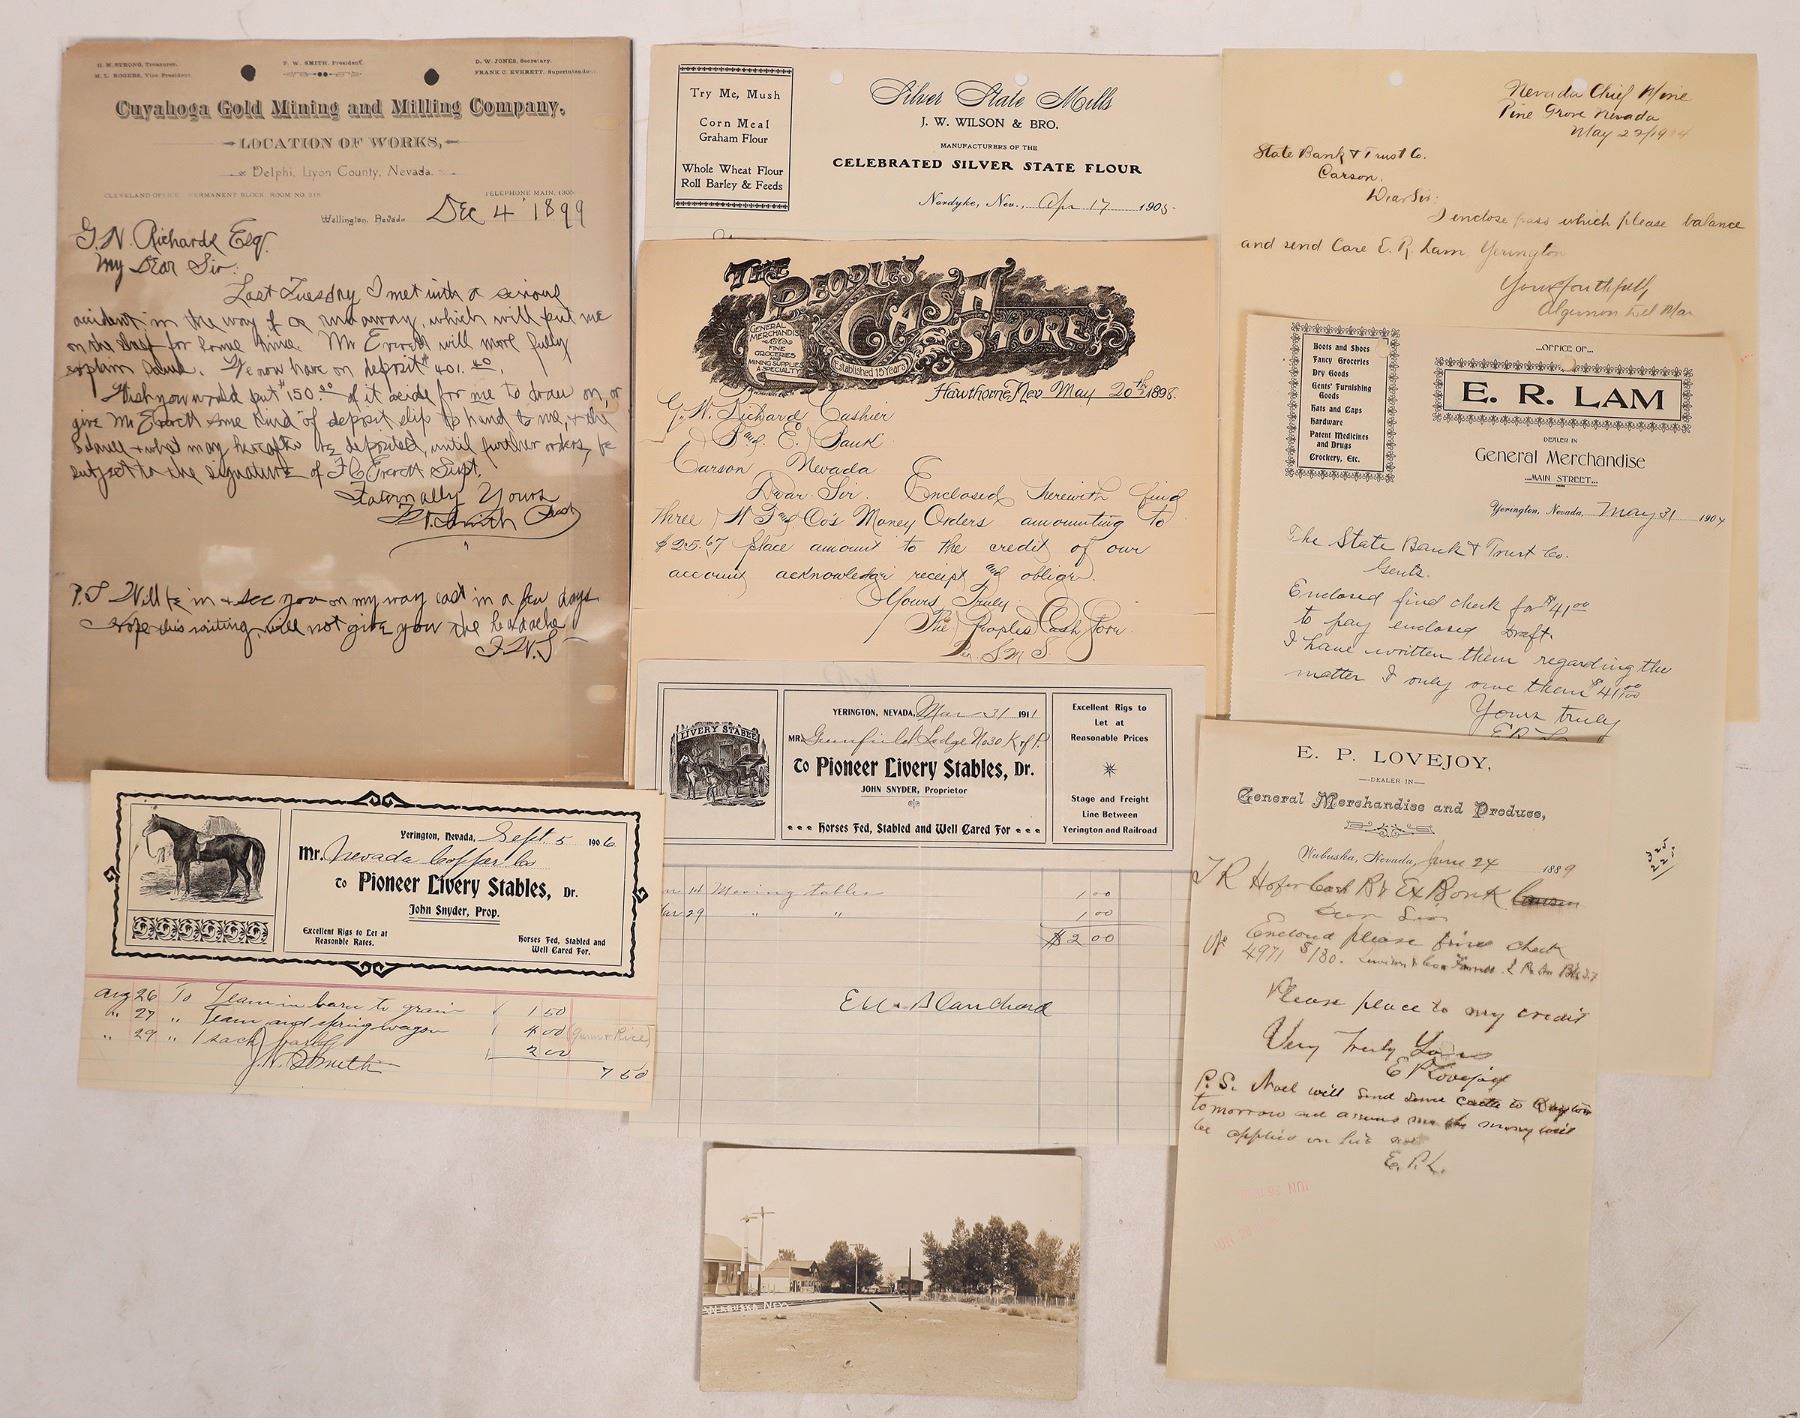 H. M. STRONG, Treasurer.
M. L. ROGERS, Vice President.
F. W. SMITH, President.
D. W. JONES, Secretary.
FRANK C. EVERETT, Superintendent.
Cuyahoga Gold Mining and Milling Company,
LOCATION OF WORKS,
Delphi, Lyon County, Nevada.
CLEVELAND OFFICE, PERMANENT BLOCK, ROOM NO. 218.
TELEPHONE MAIN, 1305
Wellington, Nevada Dec 4 1899
G. W. Richards Esq.
My Dear Sir:
Last Tuesday I met with a serious
accident in the way of a runaway, which will put me
on the shelf for some time. Mr Everett will more fully
explain. We now have on deposit $401.40.
Wish you would put $150.00 of it aside for me to draw on, or
give Mr Everett some kind of deposit slip to hand to me, +
+ what may hereafter be deposited, until further orders, be
subject to the signature of F C Everett Supt.
Fraternally Yours
F. W. Smith Prest
P.S Will be in + see you on my way east in a few days
hope this writing will not give you the headache
F. W. S
Try Me, Mush
Corn Meal
Graham Flour
Whole Wheat Flour
Roll Barley & Feeds
Silver State Mills
J. W. WILSON & BRO.
MANUFACTURERS OF THE
CELEBRATED SILVER STATE FLOUR
Nordyke, Nev., Apr 17 1905
THE PEOPLE'S CASH STORE
GENERAL MERCHANDISE
FINE GROCERIES
MINING SUPPLIES
A SPECIALTY
Established 15 Years
Hawthorne, Nev May 20th 1898
G. W. Richard Cashier
B and E. Bank
Carson Nevada
Dear Sir. Enclosed herewith find
three W F and Co's Money Orders amounting to
$25.67 place amount to the credit of our
account acknowledge receipt and oblige.
Yours Truly
The Peoples Cash Store
Per S M S.
Nevada Chief Mine
Pine Grove Nevada
May 22/1904
State Bank & Trust Co.
Carson.
Dear Sir:
I enclose pass which please balance
and send Care E. R Lam, Yerington
Yours faithfully
Algernon
Boots and Shoes
Fancy Groceries
Dry Goods
Gents' Furnishing
Goods
Hats and Caps
Hardware
Patent Medicines
and Drugs
Crockery, Etc.
...OFFICE OF...
E. R. LAM
DEALER IN
General Merchandise
...MAIN STREET...
Yerington, Nevada, May 31 1904
The State Bank & Trust Co.
Gents.
Enclosed find check for $41.00
to pay enclosed Draft.
I have written them regarding the
matter I only owe them $41.00
Yours truly
YERINGTON, NEVADA, Mar 31 1911
MR. Greenfield Lodge No 30 K of P.
To Pioneer Livery Stables, Dr.
JOHN SNYDER, Proprietor
Horses Fed, Stabled and Well Cared For
LIVERY STABLE
Excellent Rigs to
Let at
Reasonable Prices
Stage and Freight
Line Between
Yerington and Railroad
14 Moving tables 1 00
Mar 29 " " 1 00
$2 00
Blanchard
Yerington, Nevada, Sept 5 1906
Mr. Nevada Copper Co
To Pioneer Livery Stables, Dr.
John Snyder, Prop.
Excellent Rigs to Let at
Reasonable Rates.
Horses Fed, Stabled and
Well Cared For.
Aug 26 To Team in barn to grain 1 50
" 27 " Team and spring wagon 4 00
" 29 " 1 sack 2 00
7 50
Smith
E. P. LOVEJOY,
DEALER IN
General Merchandise and Produce,
Wabuska, Nevada, June 24 1889
T R Hofer Cash B & Ex Bank Carson
Dear Sir
Enclosed please find check
No 4971 $180.
Please place to my credit
Very Truly Yours
E P Lovejoy
P. S. Noel will send some cattle to Dayton
tomorrow and money will
be applied on his
E. P. L.
325
225
WABUSKA NEV